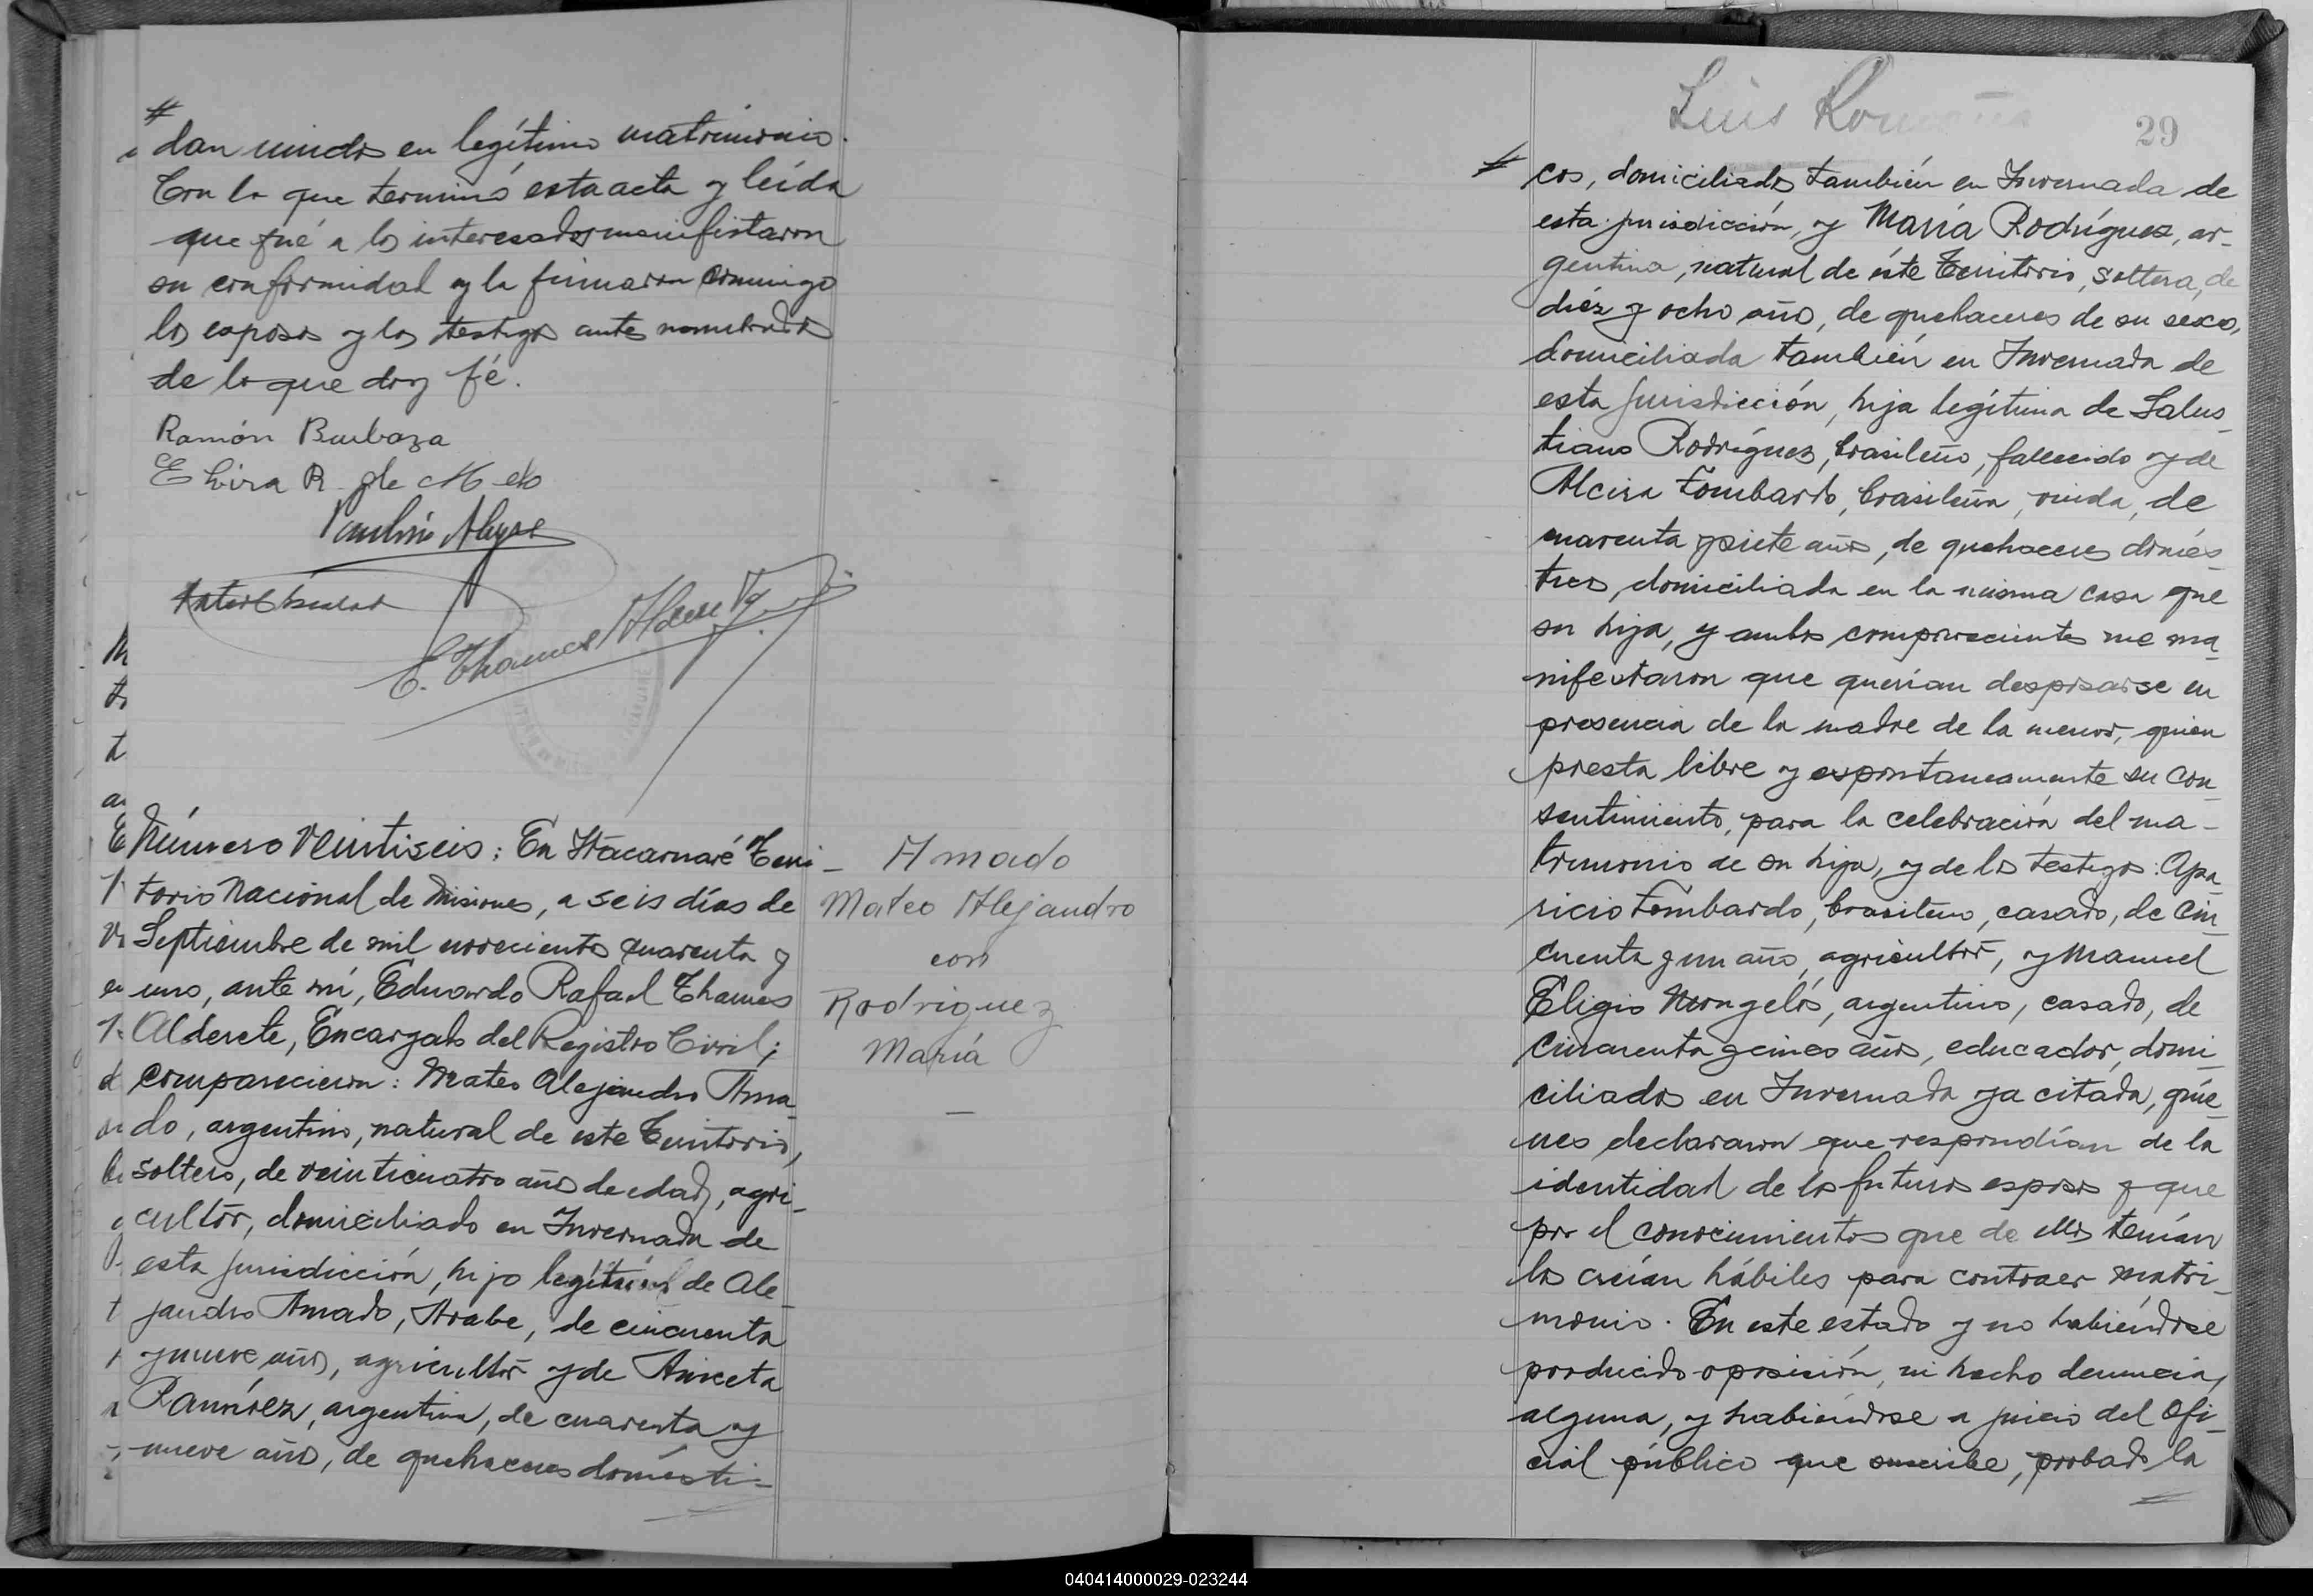 #
dan unidos en legítimo matrimonio.
Con lo que terminó esta acta y leída
que fué a los interesados manifestaron
su conformidad y la firmaron conmigo
los esposos y los testigos antes nombrados
de lo que doy fé.
Ramón Barboza
Elvira R. de
Paulino
E. Thames Alderete
Número veintiseis: En Itacaruaré Terri-
torio Nacional de Misiones, a seis días de
Septiembre de mil novecientos cuarenta y
uno, ante mí, Eduardo Rafael Thames
Alderete, Encargado del Registro Civil;
comparecieron: Mateo Alejandro Ama-
do, argentino, natural de este Territorio,
soltero, de veinticuatro años de edad, agri-
cultor, domiciliado en Invernada de
esta jurisdicción, hijo legítimo de Ale-
jandro Amado, Arabe, de cincuenta
y nueve años, agricultor y de Aniceta
Ramírez, argentina, de cuarenta y
nueve años, de quehaceres domésti-
Amado
Mateo Alejandro
con
Rodriguez
María
—
Luis Romaña
29
# cos, domiciliados también en Invernada de
esta jurisdicción, y María Rodríguez, ar-
gentina, natural de éste Territorio, soltera, de
diéz y ocho años, de quehaceres de su sexo,
domiciliada también en Invernada de
esta jurisdicción, hija legítima de Salus-
tiano Rodríguez, brasileño, fallecido y de
Alcira Fombardo, brasileña, viuda, de
cuarenta y siete años, de quehaceres domés-
ticos, domiciliada en la misma casa que
su hija, y ambos comparecientes me ma-
nifestaron que querían desposarse en
presencia de la madre de la menor, quien
presta libre y espontaneamente su con-
sentimiento, para la celebración del ma-
trimonio de su hija, y de los testigos: Apa-
ricio Fombardo, brasileño, casado, de cin-
cuenta y un años, agricultor, y Manuel
Eligio Mongelós, argentino, casado, de
cincuenta y cinco años, educador, domi-
ciliados en Invernada ya citada, quie-
nes declararon que respondían de la
identidad de los futuros esposos y que
por el conocimiento que de ellos tenían
los creían hábiles para contraer matri-
monio. En este estado y no habiéndose
producido oposición, ni hecho denuncia
alguna, y habiéndose a juicio del Ofi-
cial público que suscribe, probado la
040414000029-023244